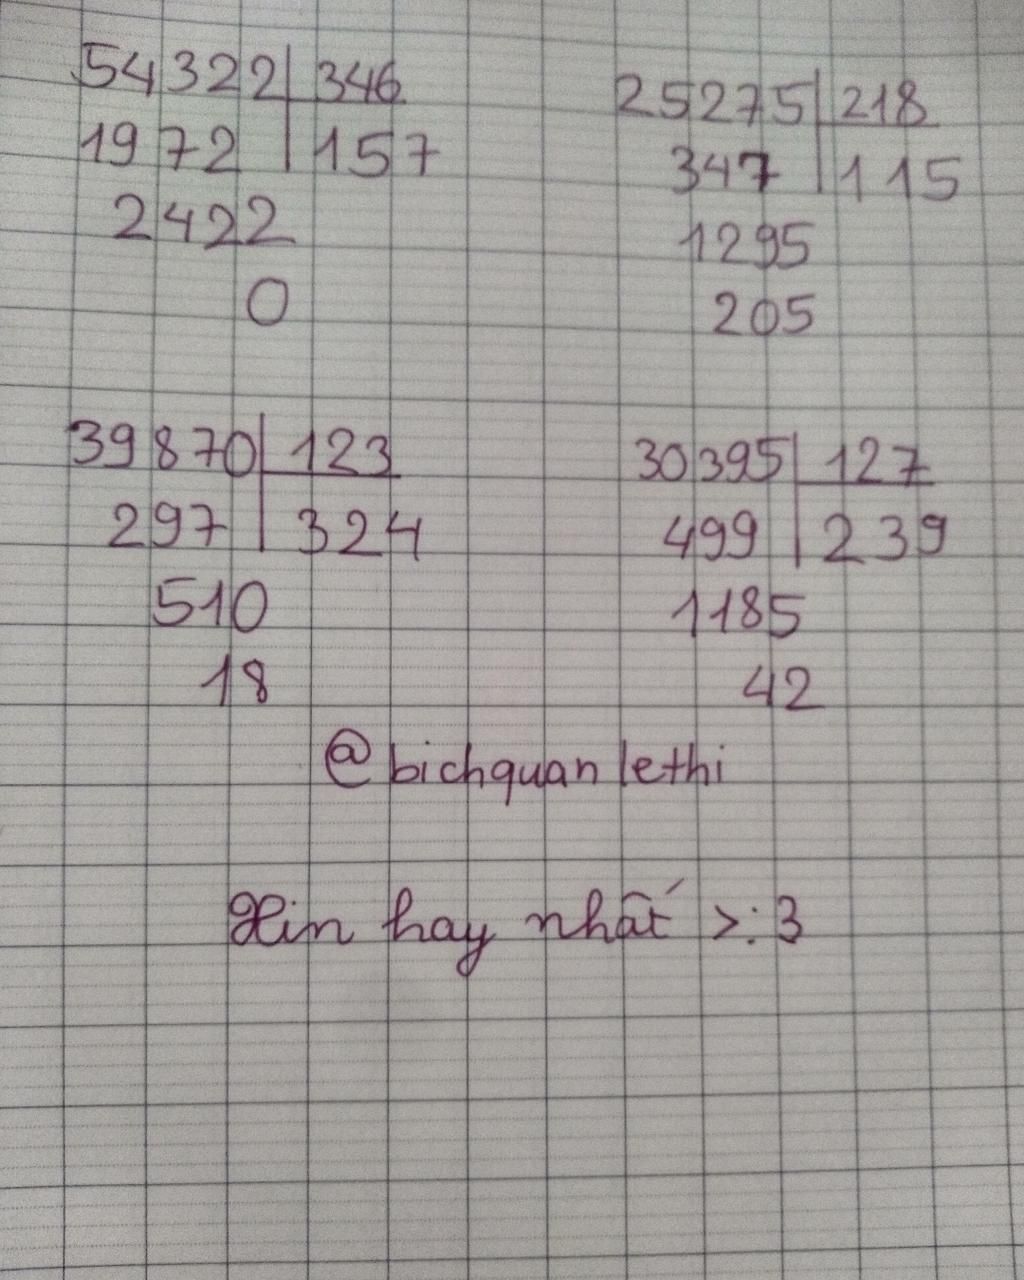 54322 346
1972 157
2422
0
25275 218
347 115
1295
205
39870 123
297 324
510
18
30395 127
499 239
1185
42
@bichquanlethi
Xin hay nhất >:3